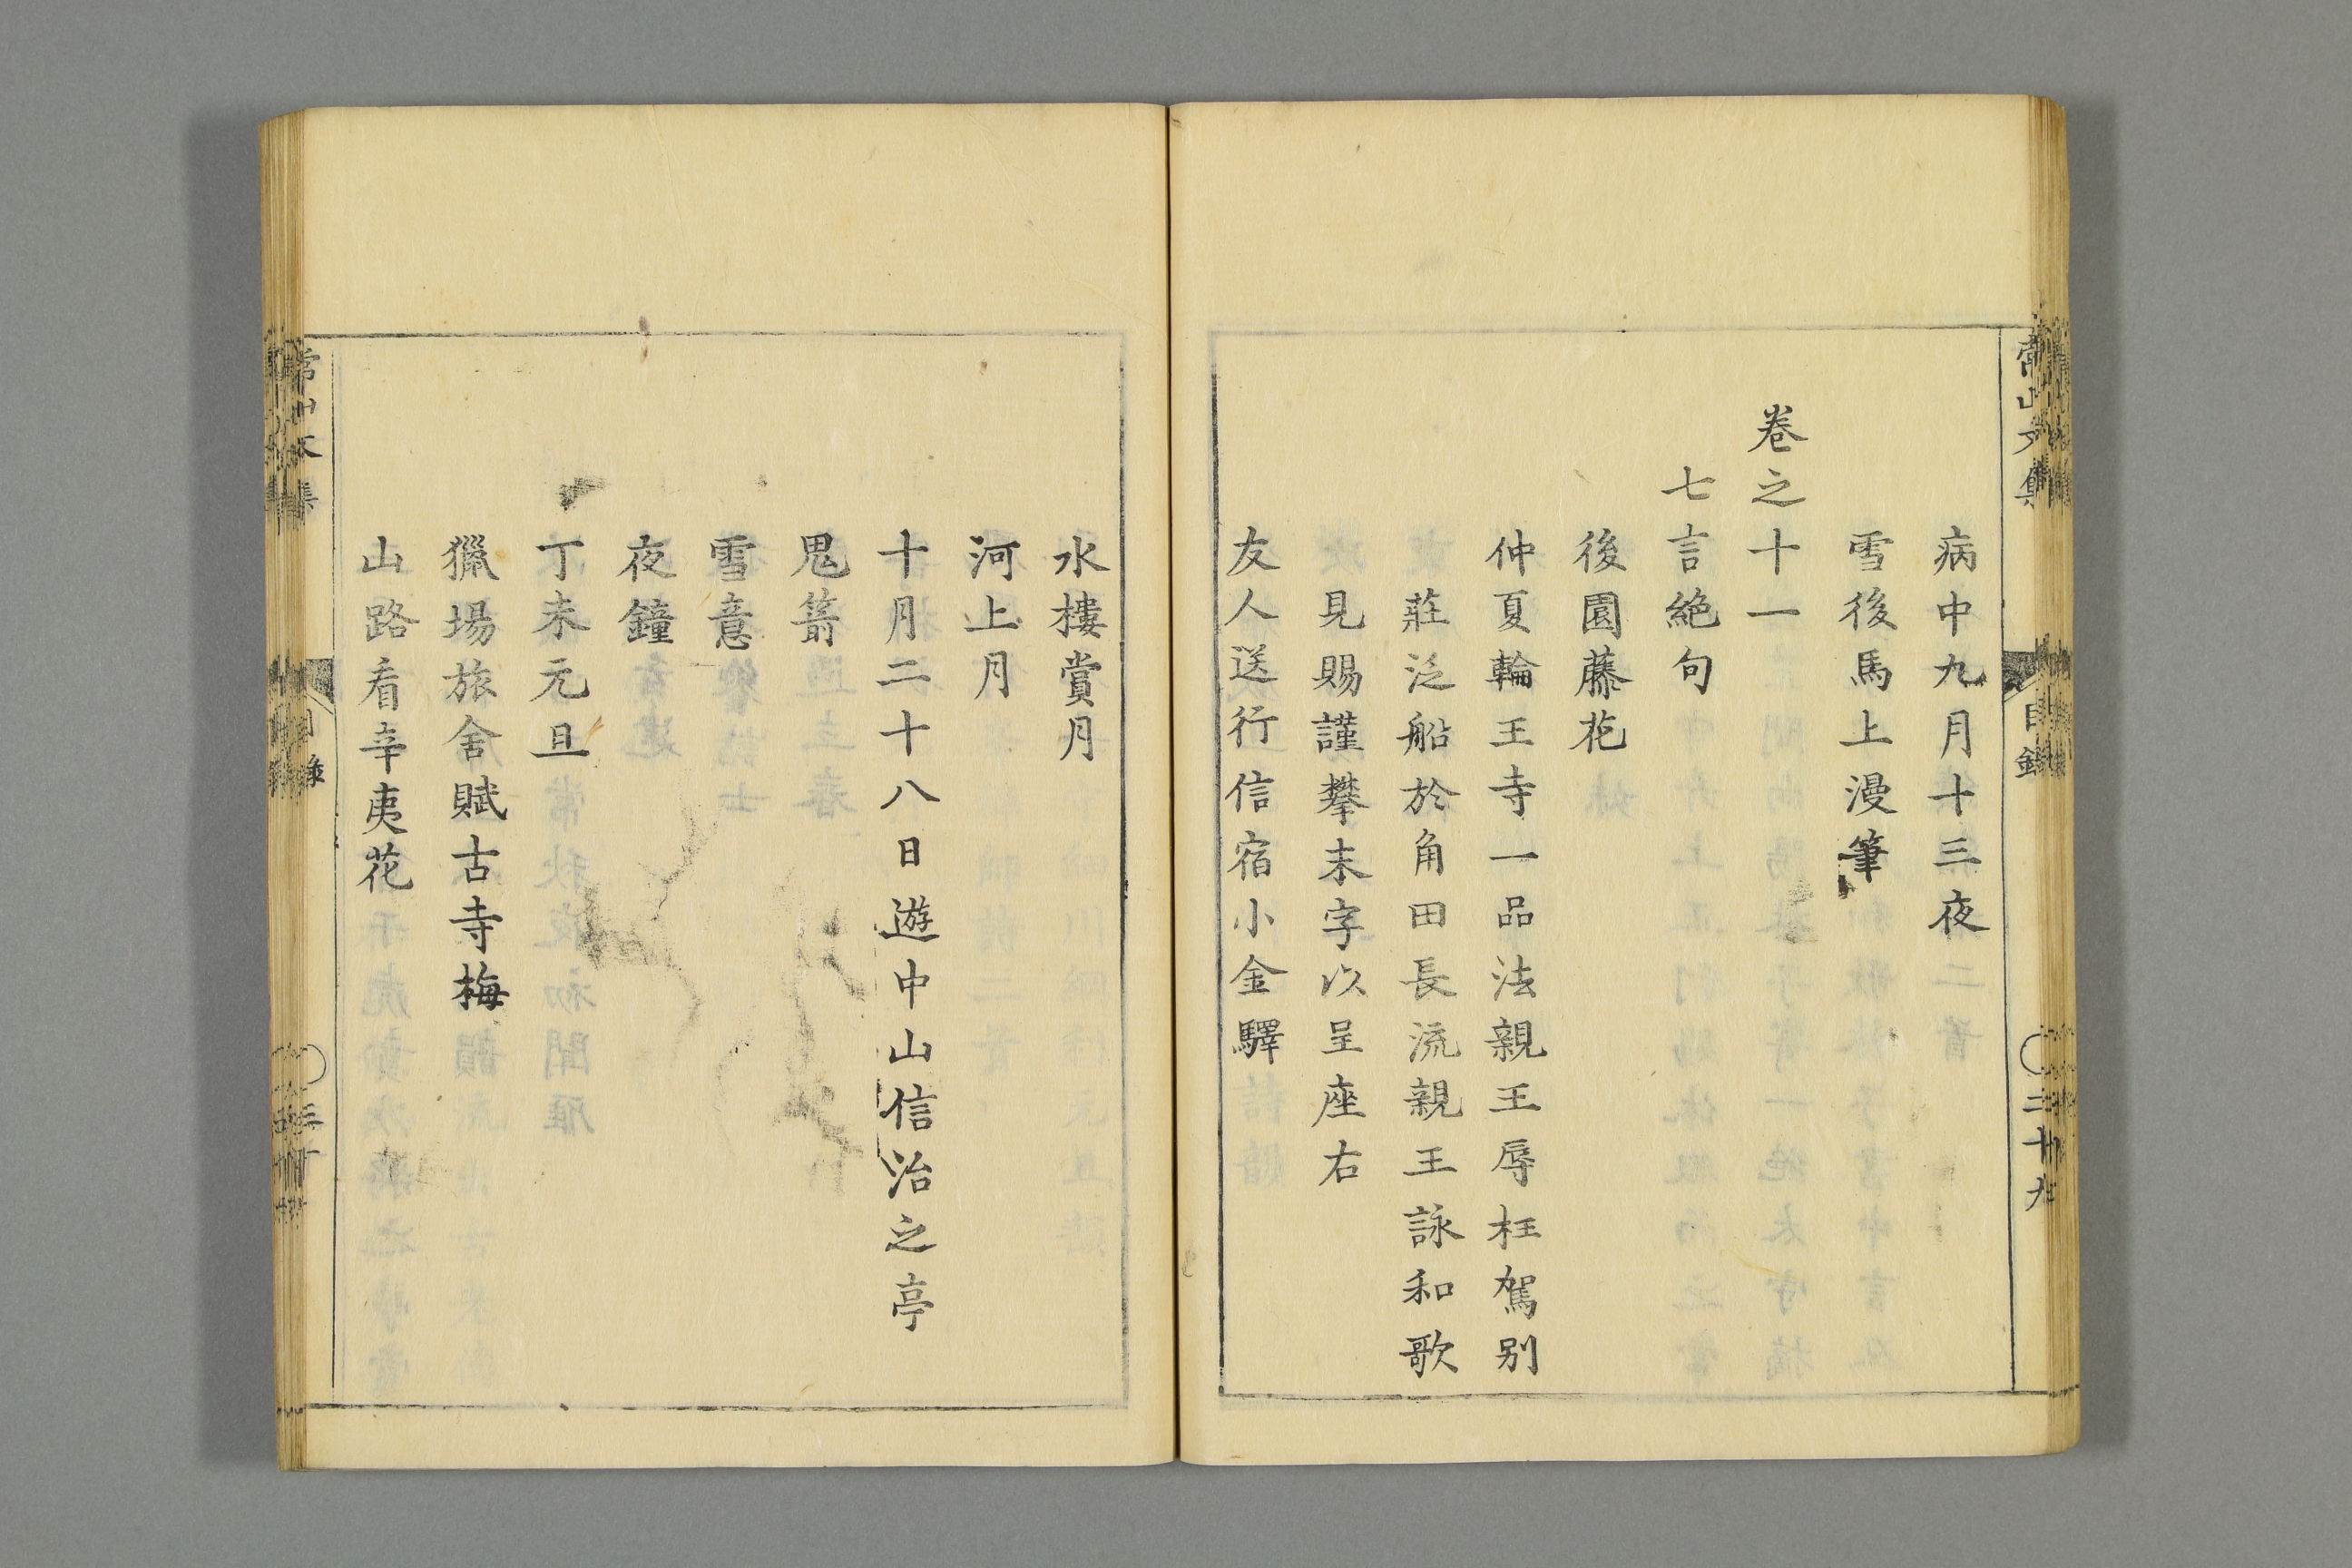 常山文集
目録
二十九
病中九月十三夜
雪後馬上漫筆
卷之十一
七言絶句
後園藤花
仲夏輪王寺一品法親王辱枉駕別
莊泛船於角田長流親王詠和歌
見賜謹攀末字以呈座右
友人送行信宿小金驛
水樓賞月
河上月
十月二十八日遊中山信治之亭
鬼箭
雪意
夜鐘
丁未元旦
獵場旅舍賦古寺梅
山路看辛夷花
常山文集
目錄